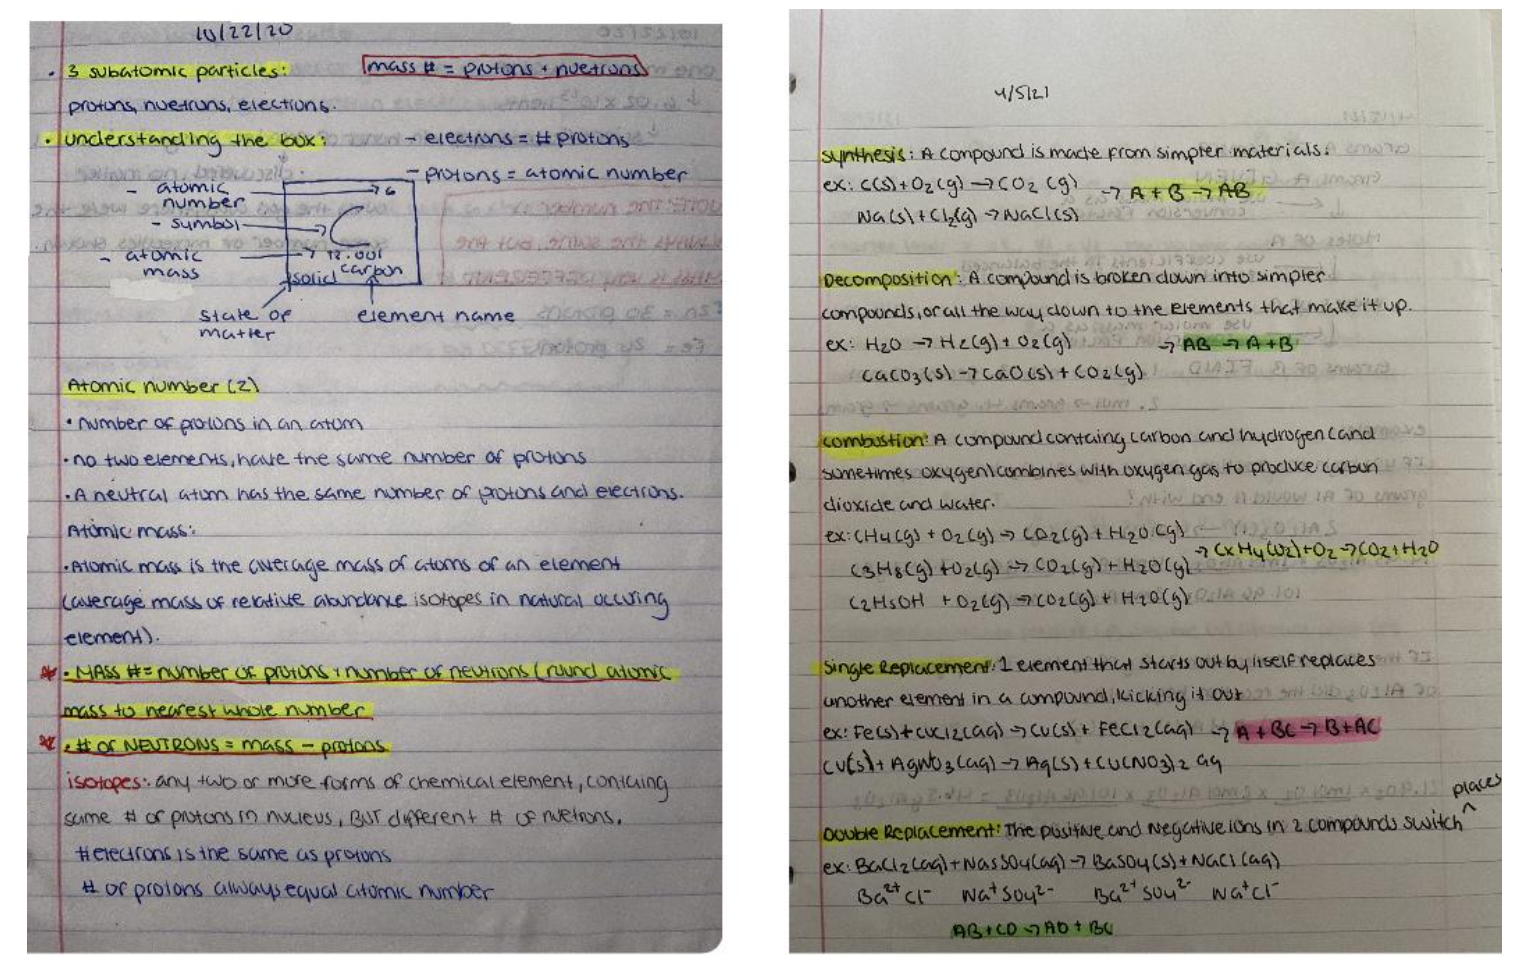 10/22/20
• 3 subatomic particles:
mass # = protons + nuetrons
protons, nuetrons, electrons.
• understanding the box:
- electrons = # protons
- protons = atomic number
- atomic number
6
- symbol
C
- atomic mass
12.001
solid
carbon
state of matter
element name
Atomic number (Z)
• number of protons in an atom
• no two elements, have the same number of protons
• A neutral atom has the same number of protons and electrons.
Atomic mass:
• Atomic mass is the average mass of atoms of an element
(average mass of relative abundance isotopes in natural occuring
element).
* • MASS # = number of protons + number of neutrons (round atomic
mass to nearest whole number
* • # of NEUTRONS = mass - protons
isotopes: any two or more forms of chemical element, containg
same # of protons in nucleus, BUT different # of nuetrons.
# electrons is the same as protons
# of protons always equal atomic number
4/5/21
synthesis: A compound is made from simpler materials.
ex: C(s) + O2(g) → CO2 (g) → A + B → AB
Na(s) + Cl2(g) → NaCl(s)
Decomposition: A compound is broken down into simpler
compounds, or all the way down to the elements that make it up.
ex: H2O → H2(g) + O2(g) → AB → A + B
CaCO3(s) → CaO(s) + CO2(g)
combustion: A compound containg carbon and hydrogen (and
sometimes oxygen) combines with oxygen gas to produce carbon
dioxide and water.
ex: CH4(g) + O2(g) → CO2(g) + H2O(g)
→ CxHy(O2) + O2 → CO2 + H2O
C3H8(g) + O2(g) → CO2(g) + H2O(g)
C2H5OH + O2(g) → CO2(g) + H2O(g)
Single Replacement: 1 element that starts out by itself replaces
another element in a compound, kicking it out
ex: Fe(s) + CuCl2(aq) → Cu(s) + FeCl2(aq) → A + BC → B + AC
Cu(s) + AgNO3(aq) → Ag(s) + Cu(NO3)2 aq
places
Double Replacement: The positive and negative ions in 2 compounds switch ^
ex: BaCl2(aq) + NasSO4(aq) → BaSO4(s) + NaCl(aq)
Ba2+ Cl- Na+ SO42- Ba2+ SO42- Na+ Cl-
AB + CD → AD + BC